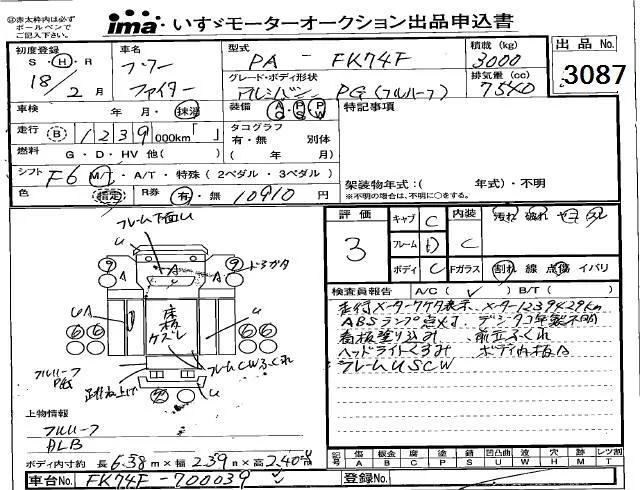 ◎赤太枠内は必ず
ボールペンで
ご記入下さい。
ima いすゞモーターオークション出品申込書
初度登録 S・H・R 18/2月
車名 フソー ファイター
型式 PA - FK74F
積載(kg) 3000
出品No. 3087
グレード・ボディ形状 アルミバン PG(フルハーフ)
排気量(cc) 7540
車検 年・月・抹消
装備 AC PS PW
特記事項
走行 B 1239 000km「 」
タコグラフ 有・無 別体
燃料 G・D・HV 他( )
( 年 月)
シフト F6 M/T・A/T・特殊(2ペダル・3ペダル)
架装物年式:( 年式)・不明
※不明の場合は、不明に○をする。
色 指定 R券 有・無 10910円
評価 3
キャブ C
フレーム D
ボディ C
内装 C
汚れ 破れ
Fガラス 割れ 線 点傷 イバリ
検査員報告 A/C( ✓ ) B/T( )
走行メーター7ケタ表示 メーター1239429km
ABSランプ点灯 デジタコ年製不明
看板塗り込み 前立ふくれ
ヘッドライトくすみ ボディ内板B
フレームUSCW
フレーム下面U
U
A
A
A
9
9
ドヨガタ
UA
床板
ケズレ
U
6 6
6 6
フレームCWふくれ
フルハーフ
P式
U
上物情報
フルハーフ
ALB
ボディ内寸約 長6.38m×幅2.39m×高2.40m
記号 傷 A 板金 B 腐 C 塗 P 錆 S 凹凸曲 U 波 W 穴 H 跡 M レツ割 T
車台No. FK74F-700039
登録No.